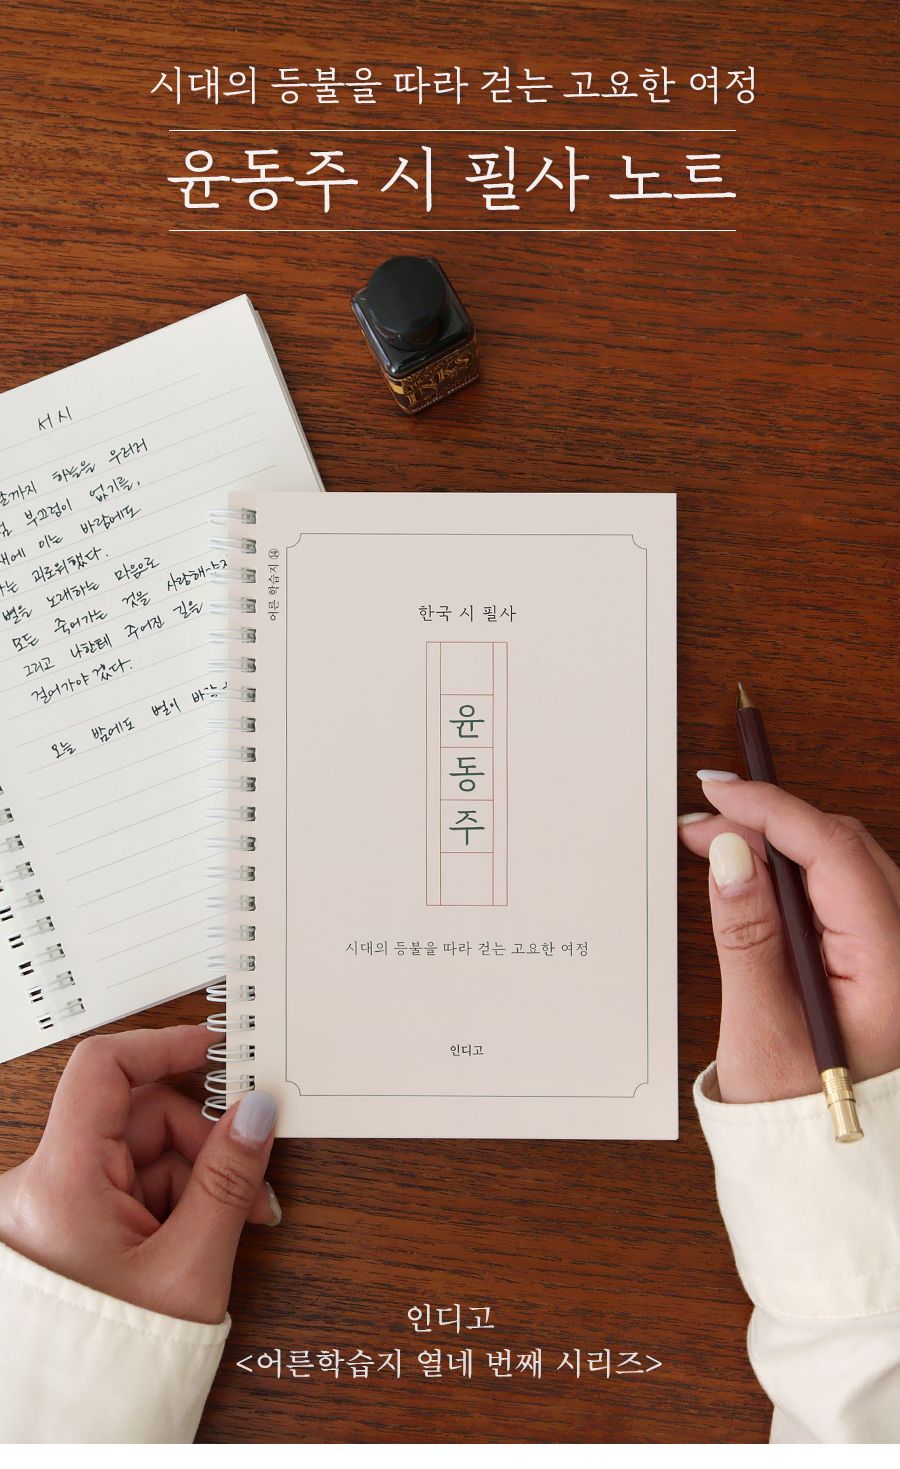 시대의 등불을 따라 걷는 고요한 여정
윤동주 시 필사 노트
INKS
서시
하늘을 우러러
부끄럼이 없기를,
이는 바람에도
괴로워했다.
별을 노래하는 마음으로
모든 죽어가는 것을 사랑해야지
그리고 나한테 주어진 길을
걸어가야겠다.
오늘 밤에도 별이
어른 학습지 14
한국 시 필사
윤동주
시대의 등불을 따라 걷는 고요한 여정
인디고
인디고
<어른학습지 열네 번째 시리즈>